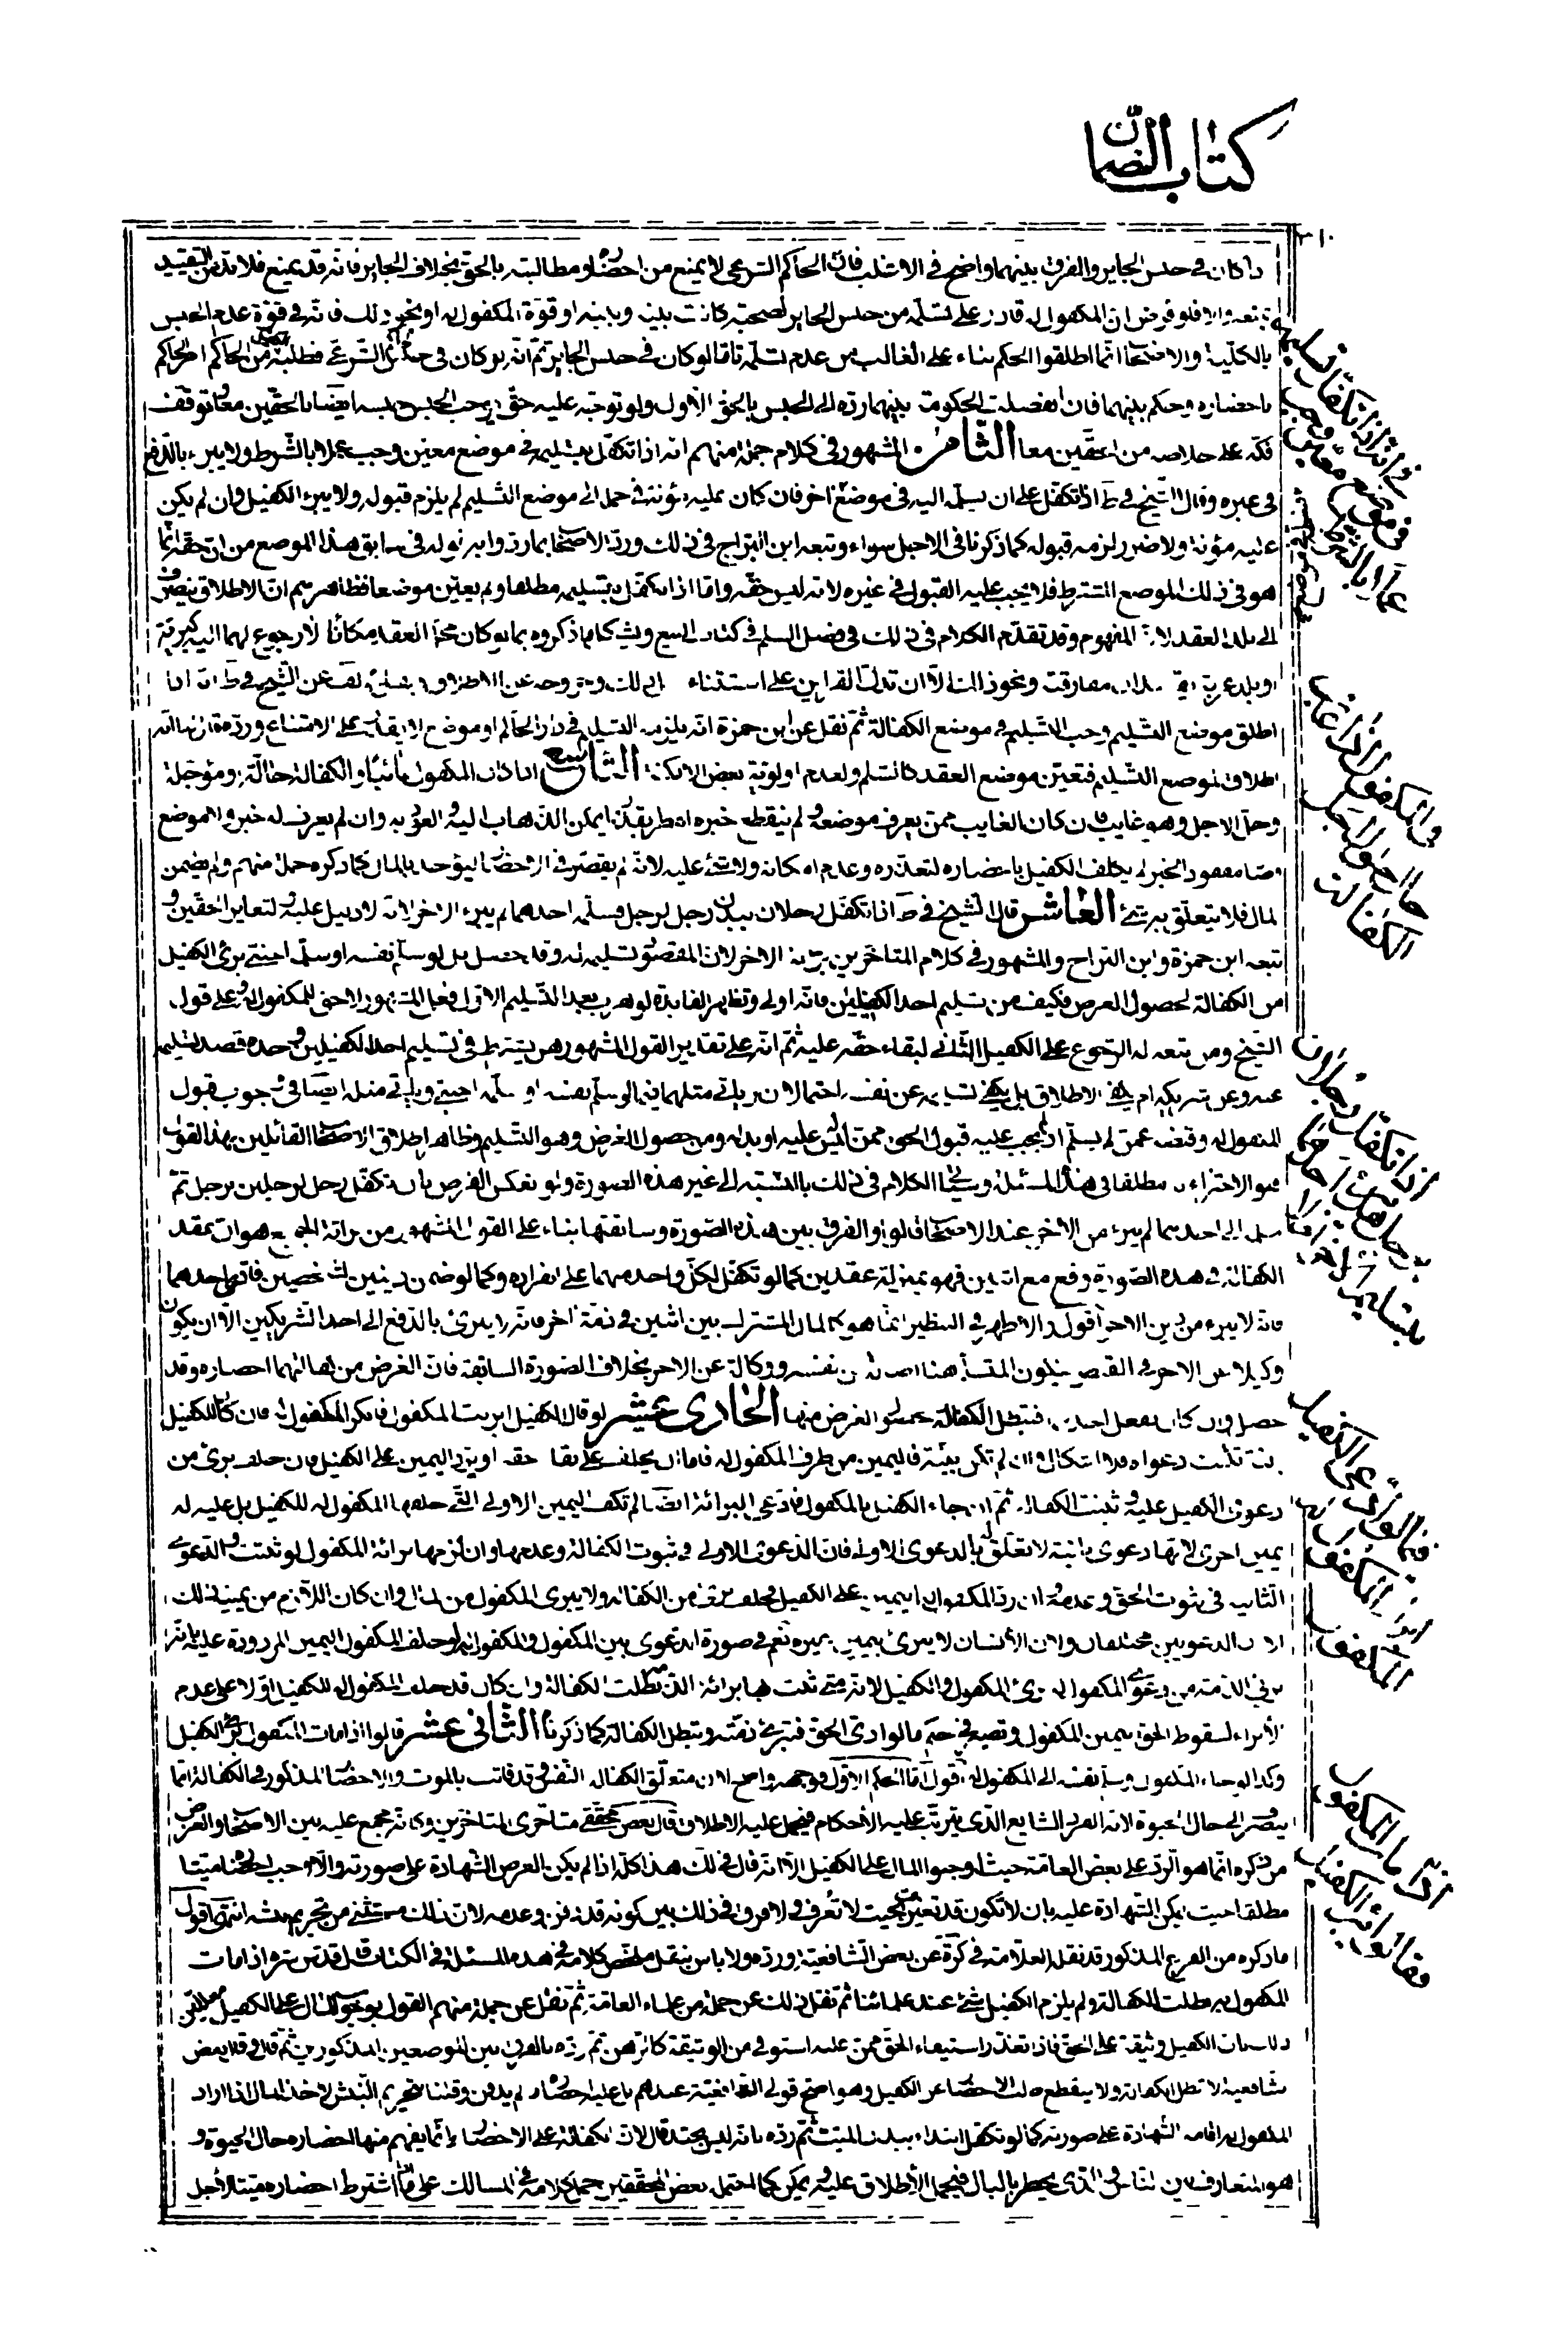 كتاب الضمان
اذا كان فى حبس الجاير والفرق بينهما واضح فى الاغلب فان الحاكم الشرعى لا يمنع من احضاره ومطالبته بالحق بخلاف الجاير فانه قد يمنع فلا بد من التقييد
بتعذره فلو فرض ان المكفول له قادر على تسلمه من حبس الجاير لصحبة كانت بينه وبينه او قوة المكفول له او نحو ذلك فانه فى قوة عدم الحبس
بالكلية والاصحاب انما اطلقوا الحكم بناء على الغالب من عدم تسلمه تاما لو كان فى حبس الجاير ثم انه لو كان فى حبس الشرعى فطلبه من الحاكم امر الحاكم
باحضاره وحكم بينهما فان انفصلت الحكومة بينهما رده الى الحبس بالحق الاول ولو توجه عليه حق يوجب الحبس حبسه ايضا بالحقين معا وتوقف
فكه على خلاصه من الحقين معا الثامن المشهور فى كلام جملة منهم انه اذا تكفل بتسليمه فى موضع معين وجب عملا بالشرط ولا يبرء بالدفع
فى غيره وقال الشيخ فى ط اذا تكفل على ان يسلمه اليه فى موضع فسلمه فى موضع اخر فان كان عليه مؤنة فى حمله الى موضع التسليم لم يلزم قبوله ولا يبرء الكفيل وان لم يكن
عليه مؤنة ولا ضرر لزمه قبوله كما ذكرنا فى الاجل سواء وتبعه ابن البراج فى ذلك ورده الاصحاب بما ردوا به قوله فى سابق هذا الموضع من ان حقه انما
هو فى ذلك الموضع المشترط فلا يجب عليه القبول فى غيره لانه ليس حقه واما اذا تكفل بتسليمه مطلقا ولم يعين موضعا فظاهرهم ان الاطلاق ينصرف
الى بلد العقد لانه المفهوم وقد تقدم الكلام فى ذلك فى فصل السلم فى كتاب البيع ويشكل ما ذكروه بما لو كان محل العقد مكانا لا رجوع لهما اليه كبرية
او بلد غربة مفارقته ونحو ذلك الا ان تدل القراين على استثناء ذلك وخروجه عن الاطلاق نقل عن الشيخ فى ط انه اذا
اطلق موضع التسليم وجب التسليم فى موضع الكفالة ثم نقل عن ابن حمزة انه يلزمه التسليم فى دار الحاكم او موضع لا يقدر على الامتناع ورده بان
اطلاق لموضع التسليم فتعين موضع العقد كالسلم ولعدم اولوية بعض الامكنة التاسع اذا كان المكفول غائبا والكفالة حالة او مؤجلة
وحل الاجل وهو غايب فان كان الغايب ممن يعرف موضعه ولم ينقطع خبره انظر بقدر ما يمكن الذهاب اليه والعود به وان لم يعرف له خبر ولا موضع
مفقود الخبر لم يكلف الكفيل باحضاره لتعذره وعدم امكانه ولا شئ عليه لانه لم يقصر فى الاحضار ليؤخذ بالمال كما ذكره جملة منهم ولم يضمن
المال فلا يتعلق به شئ العاشر قال الشيخ فى ط اذا تكفل رجلان ببدن رجل لرجل فسلمه احدهما لم يبرء الاخر لانه لا دليل عليه ولتغاير الحقين و
تبعه ابن حمزة وابن البراج والمشهور فى كلام المتاخرين براءة الاخر لان المقصود تسليمه له وقد حصل بل لو سلم نفسه او سلمه اجنبى برئ الكفيل
من الكفالة لحصول الغرض فكيف من تسليم احد الكفيلين فانه اولى وتظهر الفايدة لو هرب بعد التسليم الاول فعلى المشهور لا حق للمكفول له وعلى قول
الشيخ ومن تبعه له الرجوع على الكفيل الثانى لبقاء حقه عليه ثم انه على تقدير القول المشهور هل يشترط فى تسليم احد الكفيلين وحده قصد تسليمه
عنه وعن شريكه ام يكفى الاطلاق بل يكفى تسليمه عن نفسه احتمالان وياتى مثلهما فيما لو سلم نفسه او سلمه اجنبى وياتى مثله ايضا فى وجوب قبول
المكفول له وقبضه عمن لم يسلم اذ لا يجب عليه قبول الحق ممن ليس عليه او بدله ومن حصول الغرض وهو التسليم وظاهر اطلاق الاصحاب القائلين بهذا القول
هو الاجتزاء به مطلقا فى هذه المسئلة وسيجئ الكلام فى ذلك بالنسبة الى غير هذه الصورة ولو انعكس الفرض بان تكفل رجل لرجلين برجل ثم
سلمه الى احدهما لم يبرء من الاخر عند الاصحاب قالوا والفرق بين هذه الصورة وسابقتها بناء على القول المشهور من براءة الجميع هو ان عقد
الكفالة فى هذه الصورة وقع مع اثنين فهو بمنزلة عقدين كما لو تكفل لكل واحد منهما على انفراده وكما لو ضمن دينين لشخصين فادى احدهما
فانه لا يبرء من دين الاخر اقول والاظهر فى التنظير انما هو كالمال المشترك بين اثنين فى ذمة اخر فانه لا يبرئ بالدفع الى احد الشريكين الا ان يكون
وكيلا عن الاخر فى القبض فيكون المتسلم هنا اصالة عن نفسه ووكالة عن الاخر بخلاف الصورة السابقة فان الغرض من كفالتهما احضاره وقد
حصل وان كان بفعل احدهما فتبطل الكفالة حصول الغرض منها الحادى عشر لو قال الكفيل ابرئت المكفول فانكر المكفول له فان كان للكفيل
بينة تثبت دعواه فلا اشكال وان لم تكن بينة فاليمين من طرف المكفول له فاما ان يحلف على بقاء حقه او يرد اليمين على الكفيل فان حلف برئ من
دعوى الكفيل عليه وثبتت الكفالة ثم ان جاء الكفيل بالمكفول فادعى البرائة ايضا لم تكف اليمين الاولى التى حلفها المكفول له للكفيل بل عليه له
يمين اخرى لانها دعوى ثانية لا تعلق لها بالدعوى الاولى فان الدعوى الاولى فى ثبوت الكفالة وعدمها وان لزمها برائة المكفول لو ثبتت والدعوى
الثانية فى ثبوت الحق وعدمه ولو رد المكفول له اليمين على الكفيل وحلف برئ من الكفالة ولا يبرئ المكفول من المال وان كان اللازم من يمينه ذلك
لان الدعويين مختلفتان ولان الانسان لا يبرئ بيمين غيره نعم فى صورة الدعوى بين المكفول والمكفول له لو حلف المكفول اليمين المردودة عليه بانه
برئ الذمة من دعوى المكفول له برئ المكفول والكفيل لانه متى ثبت بها برائة الذمة بطلت الكفالة وان كان قد حلف المكفول له للكفيل اولا على عدم
الابراء لسقوط الحق بيمين المكفول وتصير فى حكم ما لو ادى الحق فتبرئ ذمته وتبطل الكفالة كما ذكرنا الثانى عشر قالوا اذا مات المكفول برئ الكفيل
وكذا لو جاء المكفول وسلم نفسه الى المكفول له اقول اما الحكم الاول فوجهه واضح لان متعلق الكفالة النفس وقد فاتت بالموت والاحضار المذكور فى الكفالة انما
ينصرف الى حال الحيوة لانه الفرد الشايع الذى يترتب عليه الاحكام فيحمل عليه الاطلاق قال بعض محققى متاخرى المتاخرين وكانه مجمع عليه بين الاصحاب والغرض
من ذكره انما هو الرد على بعض العامة حيث اوجبوا المال على الكفيل الا انه قال فى ذلك هذا كله اذا لم يكن الغرض الشهادة على صورته والا وجب احضاره ميتا
مطلقا حيث يمكن الشهادة عليه بان لا تكون قد تغيرت بحيث لا تعرف ولا فرق فى ذلك بين كونه قد دفن وعدمه لان ذلك مستثنى من تحريم نبشه انتهى اقول
ما ذكره من الفرع المذكور قد نقله العلامة فى كرة عن بعض الشافعية ورده ولا باس بنقل ملخص كلامه فى هذه المسئلة فى الكتاب قال قدس سره اذا مات
المكفول به بطلت الكفالة ولم يلزم الكفيل شئ عند علمائنا ثم نقل ذلك عن جملة من علماء العامة ثم نقل عن جملة منهم القول بوجوب المال على الكفيل معللين
بان الكفيل وثيقة على الحق فاذا تعذر استيفاء الحق ممن عليه استوفى من الوثيقة كالرهن ثم رده بالفرق بين الموضعين المذكورين ثم قال وقال بعض
الشافعية لا تبطل الكفالة ولا ينقطع طلب الاحضار عن الكفيل وهو اصح قولى الشافعية عندهم بل عليه احضاره لم يدفن وقلنا بتحريم النبش لاخذ المال اذا اراد
المكفول له اقامة الشهادة على صورته كما لو تكفل ابتداء ببدن الميت ثم رده بانه ليس بجيد قال لان الكفالة على الاحضار انما يفهم منها احضاره حال الحيوة و
هو المتعارف بين الناس والذى يخطر بالبال فيحمل الاطلاق عليه ويمكن كما احتمله بعض المحققين حمل كلامه فى المسالك على ما اذا اشترط احضاره ميتا لاجل
والمكفول اذا غاب
اذا تكفل رجلان
اذا مات المكفول